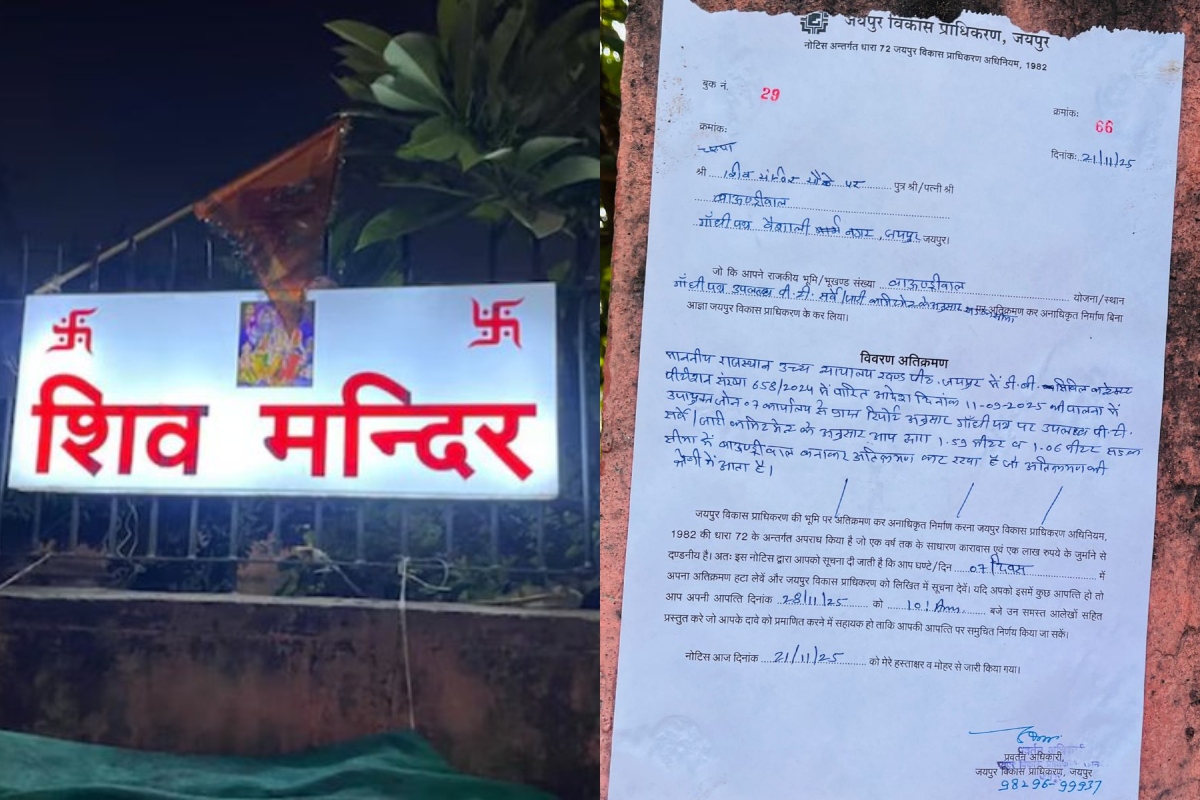 शिव मन्दिर
जयपुर विकास प्राधिकरण, जयपुर
नोटिस अन्तर्गत धारा 72 जयपुर विकास प्राधिकरण अधिनियम, 1982
बुक नं. 29
क्रमांक: 66
क्रमांक:
दिनांक: 21/11/25
चस्पा
श्री शिव मंदिर मौके पर पुत्र श्री/पत्नी श्री
बाऊण्ड्रीवाल
गाँधी पथ वैशाली नगर, जयपुर जयपुर।
जो कि आपने राजकीय भूमि/भूखण्ड संख्या बाऊण्ड्रीवाल योजना/स्थान
गाँधी पथ उपलब्ध पी.टी. सर्वे/जारी के अनुसार पर अतिक्रमण कर अनाधिकृत निर्माण बिना
आज्ञा जयपुर विकास प्राधिकरण के कर लिया।
विवरण अतिक्रमण
माननीय राजस्थान उच्च न्यायालय खण्ड पीठ, जयपुर में डी.बी. सिविल
पीटीशन संख्या 658/2024 में पारित आदेश दिनांक 11-09-2025 की पालना में
उपायुक्त जोन 07 कार्यालय से प्राप्त रिपोर्ट अनुसार गाँधी पथ पर उपलब्ध पी.टी.
सर्वे/जारी के अनुसार आप द्वारा 1.59 मीटर व 1.06 मीटर सड़क
सीमा में बाऊण्ड्रीवाल बनाकर अतिक्रमण कर रखा है जो अतिक्रमण की
श्रेणी में आता है।
जयपुर विकास प्राधिकरण की भूमि पर अतिक्रमण कर अनाधिकृत निर्माण करना जयपुर विकास प्राधिकरण अधिनियम,
1982 की धारा 72 के अन्तर्गत अपराध किया है जो एक वर्ष तक के साधारण कारावास एवं एक लाख रुपये के जुर्माने से
दण्डनीय है। अत: इस नोटिस द्वारा आपको सूचना दी जाती है कि आप घण्टे/दिन 07 दिवस में
अपना अतिक्रमण हटा लेवें और जयपुर विकास प्राधिकरण को लिखित में सूचना देवें। यदि अपको इसमें कुछ आपत्ति हो तो
आप अपनी आपत्ति दिनांक 28/11/25 को 10:Am. बजे उन समस्त आलेखों सहित
प्रस्तुत करे जो आपके दावे को प्रमाणित करने में सहायक हो ताकि आपकी आपत्ति पर समुचित निर्णय किया जा सकें।
नोटिस आज दिनांक 21/11/25 को मेरे हस्ताक्षर व मोहर से जारी किया गया।
प्रवर्तन अधिकारी,
जयपुर विकास प्राधिकरण, जयपुर
98296-99937